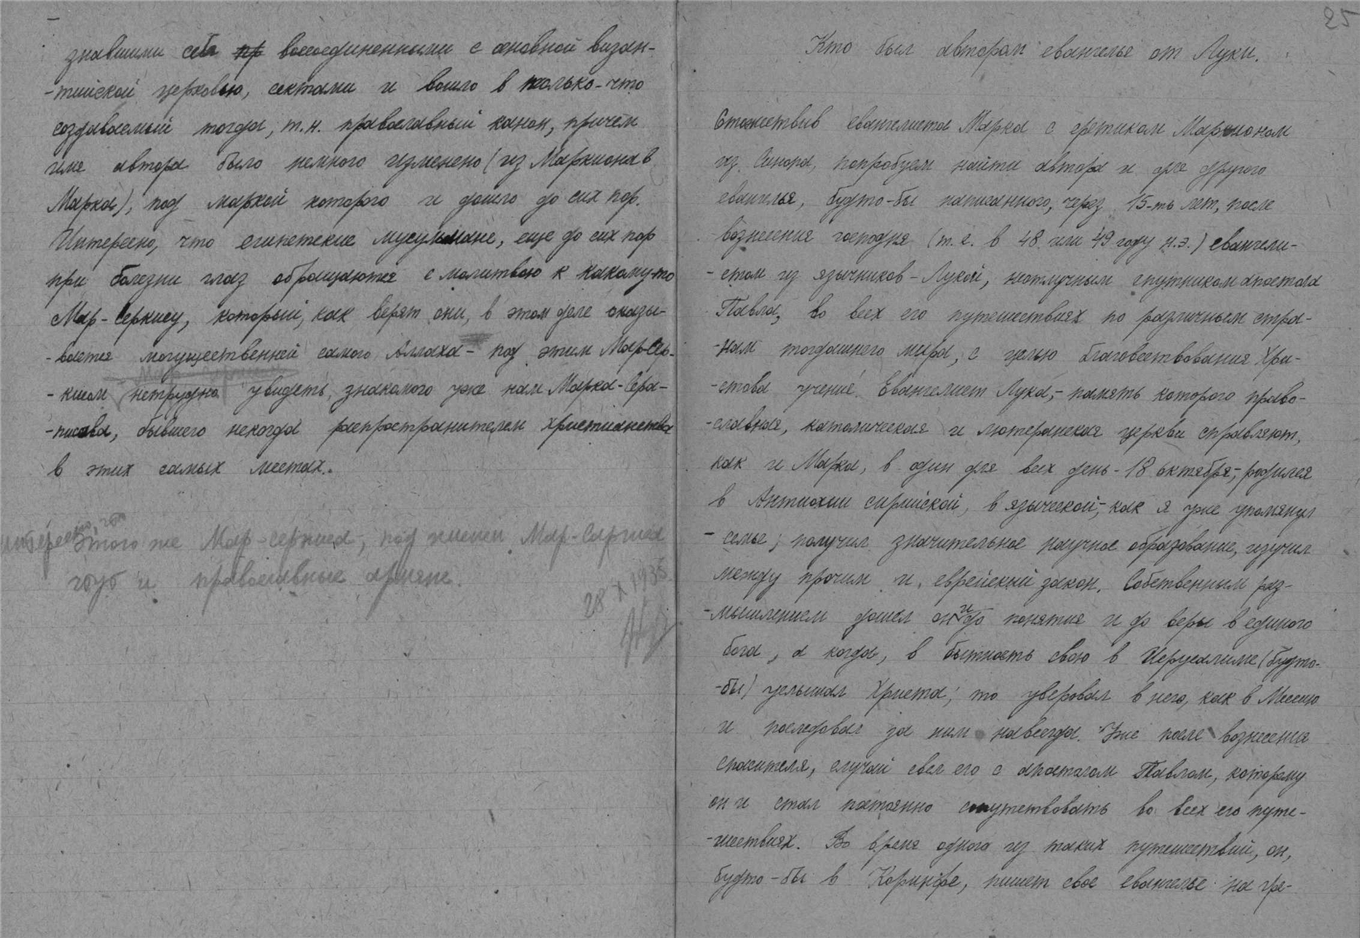 знавшими себя пр воссоединенными с основной визан-
-тийской церковью, сектами и вошло в только-что
создаваемый тогда, т.н. православный канон, причем
имя автора было немного изменено (из Маркиона в
Марка), под маркой которого и дошло до сих пор.
Интересно, что египетские мусульмане, еще до сих пор
при болезни глаз обращаются с молитвою к какому-то
Мар-Серкису, который, как верят они, в этом деле оказы-
-вается могущественней самого Аллаха - под этим Мар-Сер-
-кисом нетрудно увидеть знакомого уже нам Марка-Сера-
-писова, бывшего некогда распространителем христианства
в этих самых местах.
Интересно, что
этого же Мар-серкиса, под именем Мар-Саркиса
чтут и православные армяне.
28 X 1935
25
Кто был автором евангелье от Луки.
Отожествив евангелиста Марка с еретиком Маркионом
из Синопа, попробуем найти автора и для другого
евангелья, будто-бы написанного, через 15-ть лет, после
вознесения господня (т.е. в 48 или 49 году н.э.) евангели-
-стом из язычников - Лукой, неотлучным спутником апостола
Павла, во всех его путешествиях по различным стра-
-нам тогдашнего мира, с целью благовествования Хри-
-стова учения. Евангелист Лука, - память которого право-
-славная, католическая и лютеранская церкви справляют,
как и Марка, в один для всех день - 18 октября, - родился
в Антиохии сирийской, в языческой, - как я уже упомянул
- семье, получил значительное научное образование, изучил
между прочим и еврейский закон. Собственным раз-
-мышлением дошел он и до понятия и до веры в единого
бога, а когда, в бытность свою в Иерусалиме (будто-
-бы) услышал Христа, то уверовал в него, как в Мессию
и последовал за ним навсегда. Уже после вознесения
спасителя, случай свел его с апостолом Павлом, которому
он и стал постоянно сопутствовать во всех его путе-
-шествиях. Во время одного из таких путешествий, он,
будто-бы в Коринфе, пишет свое евангелье на гре-